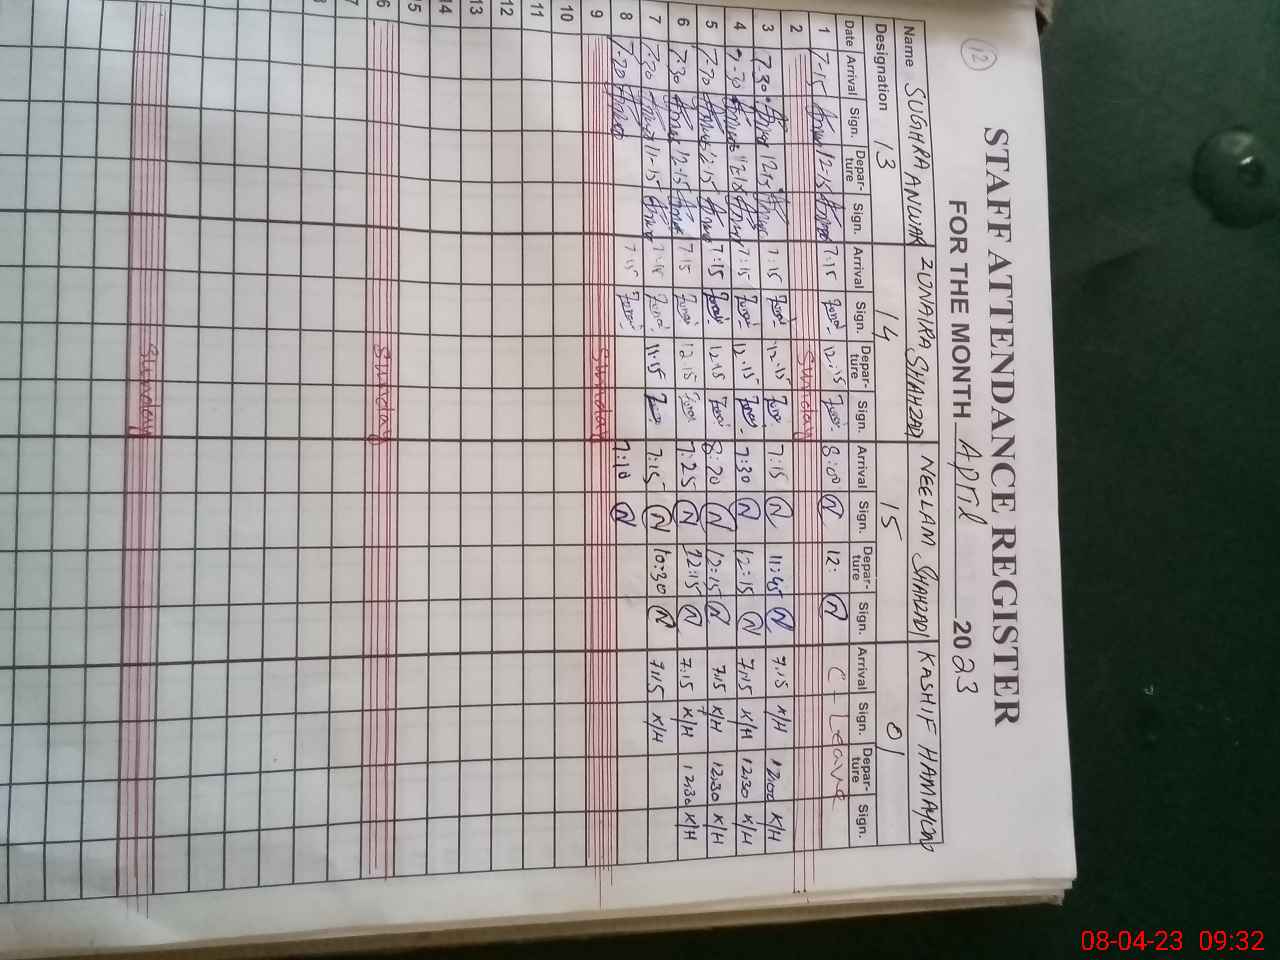 12
STAFF ATTENDANCE REGISTER
FOR THE MONTH April 2023
Name SUGHRA ANWAR ZUNAIRA SHAHZADI NEELAM SHAHZADI KASHIF HAMAYUN
Designation 13 14 15 01
Date Arrival Sign. Depar-ture Sign. Arrival Sign. Depar-ture Sign. Arrival Sign. Depar-ture Sign. Arrival Sign. Depar-ture Sign.
1 7-15 12-15 7:15 12:15 8:00 N 12: N C-Leave
2 Sunday
3 7.30 12.15 7:15 12.15 7:15 N 11:45 N 7.15 K/H 12.00 K/H
4 7.30 12.15 7:15 12.15 7:30 N 12:15 N 7.15 K/H 12.30 K/H
5 7.30 12.15 7:15 12.15 8:20 N 12:15 N 7.15 K/H 12.30 K/H
6 7.30 12.15 7:15 12.15 7:25 N 12:15 N 7:15 K/H 12.30 K/H
7 7.30 11-15 7:15 11.15 7:15 N 10:30 N 7.15 K/H
8 7.20 7:15 7:10 N
9 Sunday
10
11
12
13
14
15
6 Sunday
7
8
Sunday
08-04-23 09:32